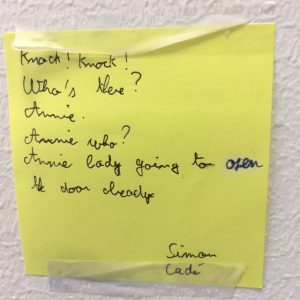 Knock! Knock!
Who's there?
Annie.
Annie who?
Annie lady going to open
the door already
Simon
Cadé